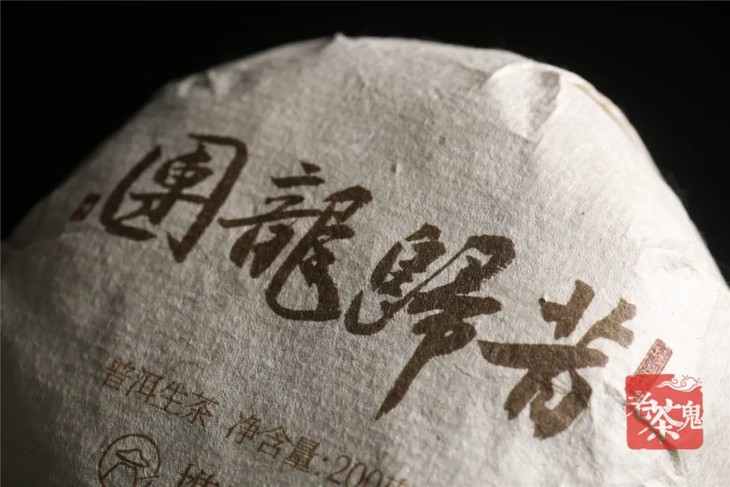 團龍歸昔
普洱生茶 净含量:200
老茶鬼